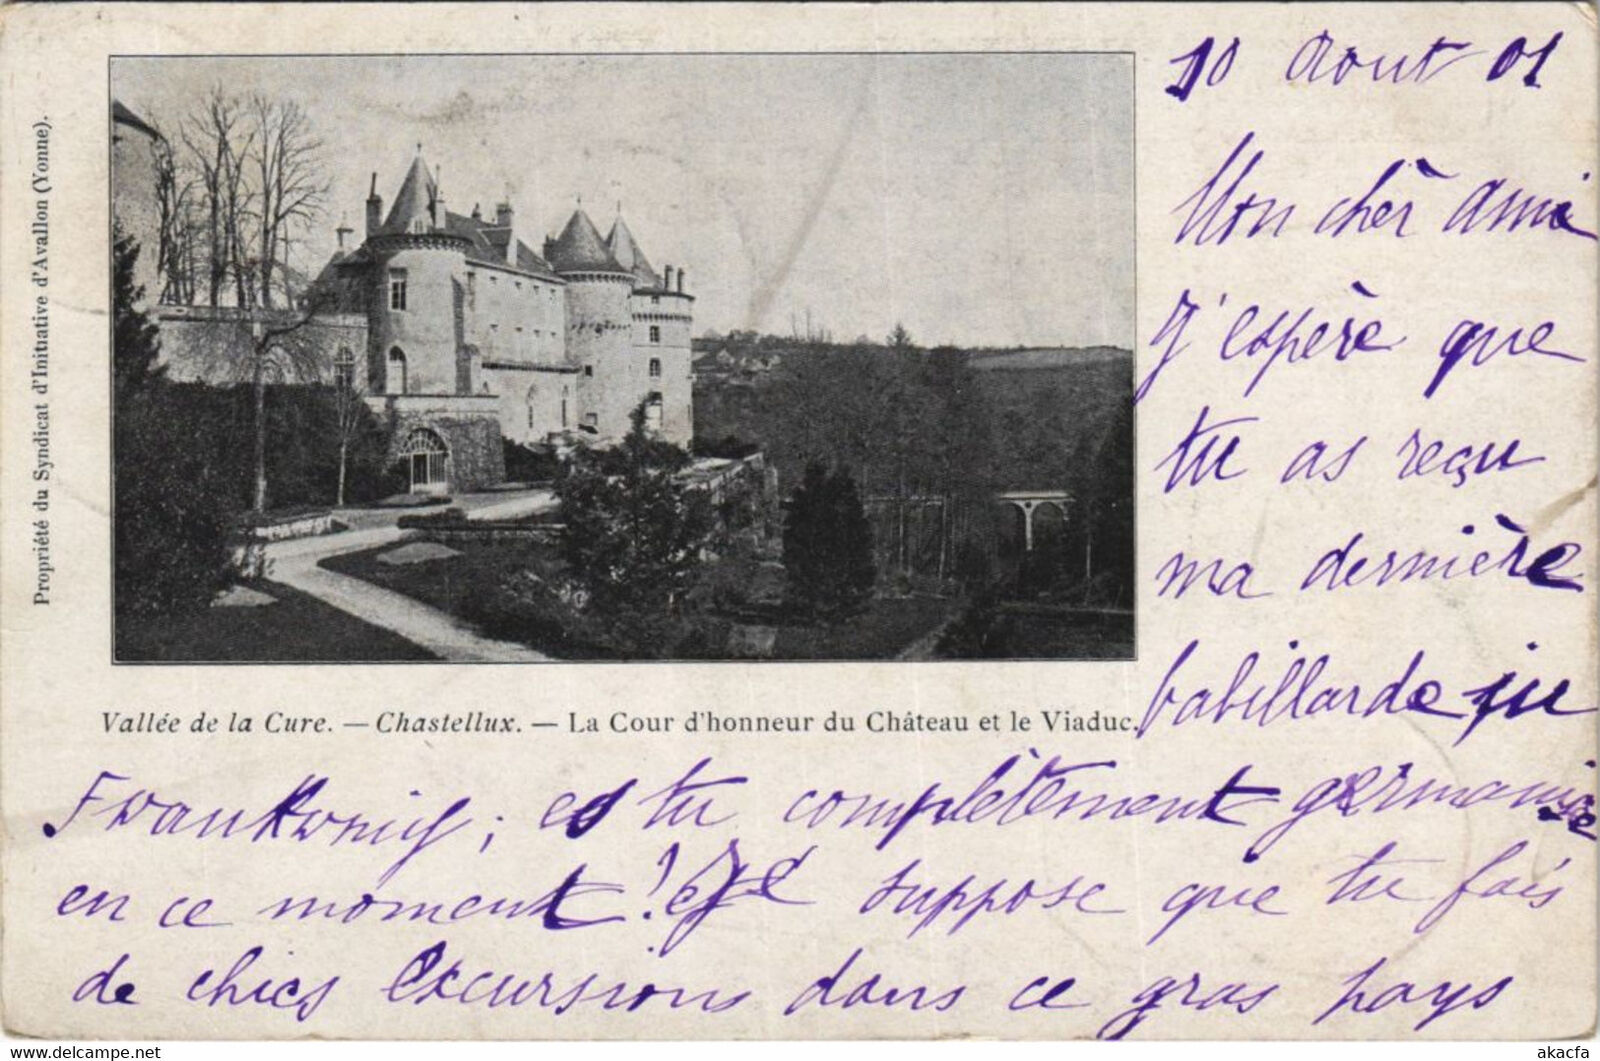 Propriété du Syndicat d'Initiative d'Avallon (Yonne).
10 Aout 01
Mon chèr Ami
J'espère que
tu as reçu
ma dernière
babillarde
Vallée de la Cure. — Chastellux. — La Cour d'honneur du Château et le Viaduc.
; es tu complètement
en ce moment! Je suppose que tu fais
de chics Excursions dans ce gros pays
akacfa
www.delcampe.net